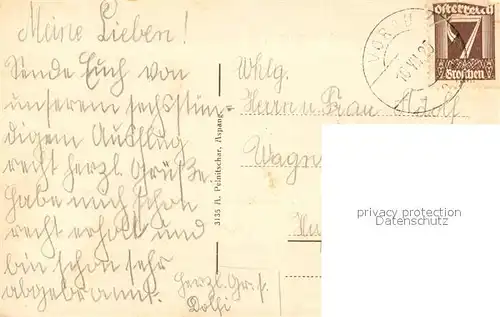 Meine Lieben!
Sende Euch von
unserem sechsstün-
digem Ausflug
recht herzl. Grüße.
Habe mich schon
recht erholt und
bin schon sehr
abgebrannt.
herzl. Gruß.
Dolfi
3135 A. Pelnitschar, Aspang.
VORAU
Österreich
7
Groschen
Whlg.
Herrn u. Frau Adolf
Wagn
privacy protection